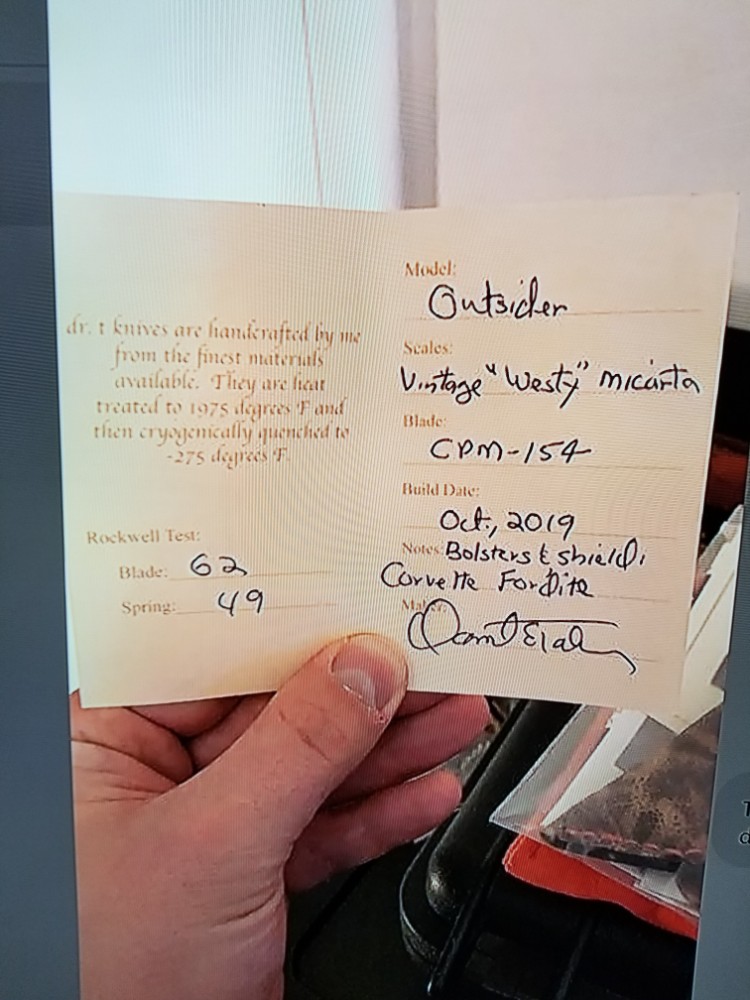 dr. t knives are handcrafted by me
from the finest materials
available. They are heat
treated to 1975 degrees F and
then cryogenically quenched to
-275 degrees F.
Rockwell Test:
Blade: 62
Spring: 49
Model:
Outsider
Scales:
Vintage "Westy" micarta
Blade:
CPM-154
Build Date:
Oct., 2019
Notes: Bolsters & shield,
Corvette Fordite
Maker: